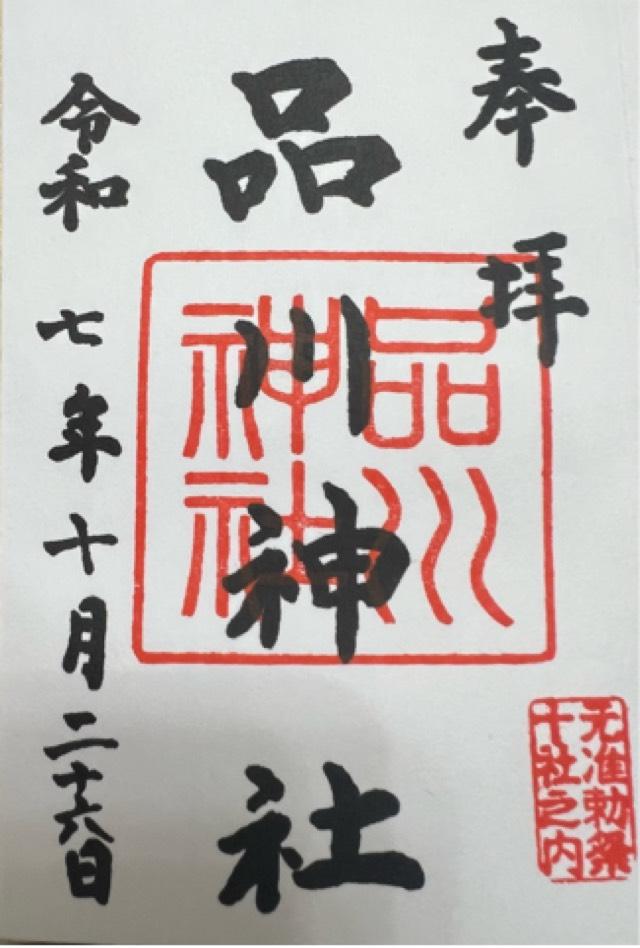 奉拝
品川神社
品川
神社
令和七年十月二十六日
元准勅祭
十社之内